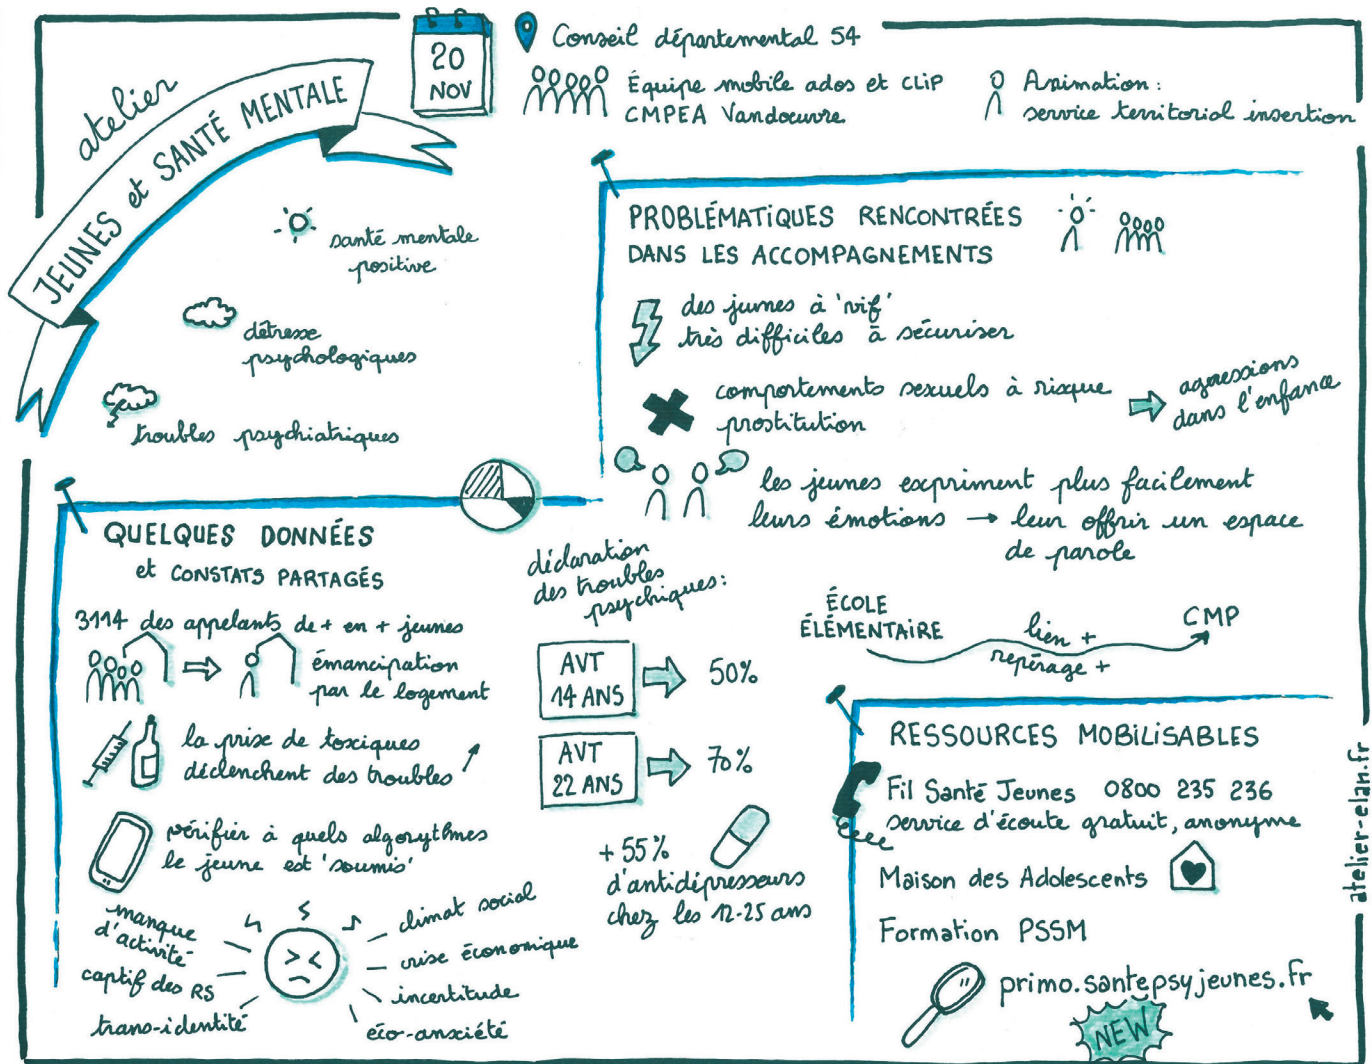 atelier
JEUNES et SANTÉ MENTALE
20
NOV
Conseil départemental 54
Équipe mobile ados et CLiP
CMPEA Vandoeuvre
Animation :
service territorial insertion
santé mentale
positive
détresse
psychologiques
troubles psychiatriques
PROBLÉMATiQUES RENCONTRÉES
DANS LES ACCOMPAGNEMENTS
des jeunes à 'vif'
très difficiles à sécuriser
comportements sexuels à risque
prostitution
agressions
dans l'enfance
les jeunes expriment plus facilement
leurs émotions → leur offrir un espace
de parole
ÉCOLE
ÉLÉMENTAiRE
lien +
repérage +
CMP
QUELQUES DONNÉES
et CONSTATS PARTAGÉS
3114 des appelants de + en + jeunes
émancipation
par le logement
la prise de toxiques
déclenchent des troubles
vérifier à quels algorythmes
le jeune est 'soumis'
manque
d'activité
captif des RS
trans-identité
climat social
crise économique
incertitude
éco-anxiété
déclaration
des troubles
psychiques :
AVT
14 ANS
50%
AVT
22 ANS
70%
+ 55%
d'antidépresseurs
chez les 12-25 ans
RESSOURCES MOBiLiSABLES
Fil Santé Jeunes 0800 235 236
service d'écoute gratuit, anonyme
Maison des Adolescents
Formation PSSM
primo.santepsyjeunes.fr
NEW
atelier-elan.fr